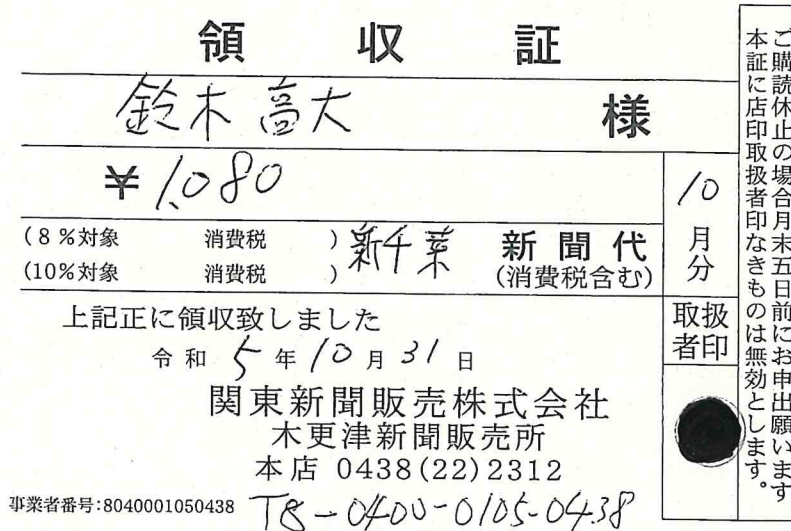 領収証
鈴木 高大 様
¥1,080
10月分
(8%対象 消費税 )
(10%対象 消費税 )
新千葉 新聞代
(消費税含む)
上記正に領収致しました
令和 5 年 10 月 31 日
取扱者印
関東新聞販売株式会社
木更津新聞販売所
本店 0438(22)2312
事業者番号:8040001050438 T8-0400-0105-0438
ご購読休止の場合月末五日前にお申出願います
本証に店印取扱者印なきものは無効とします。